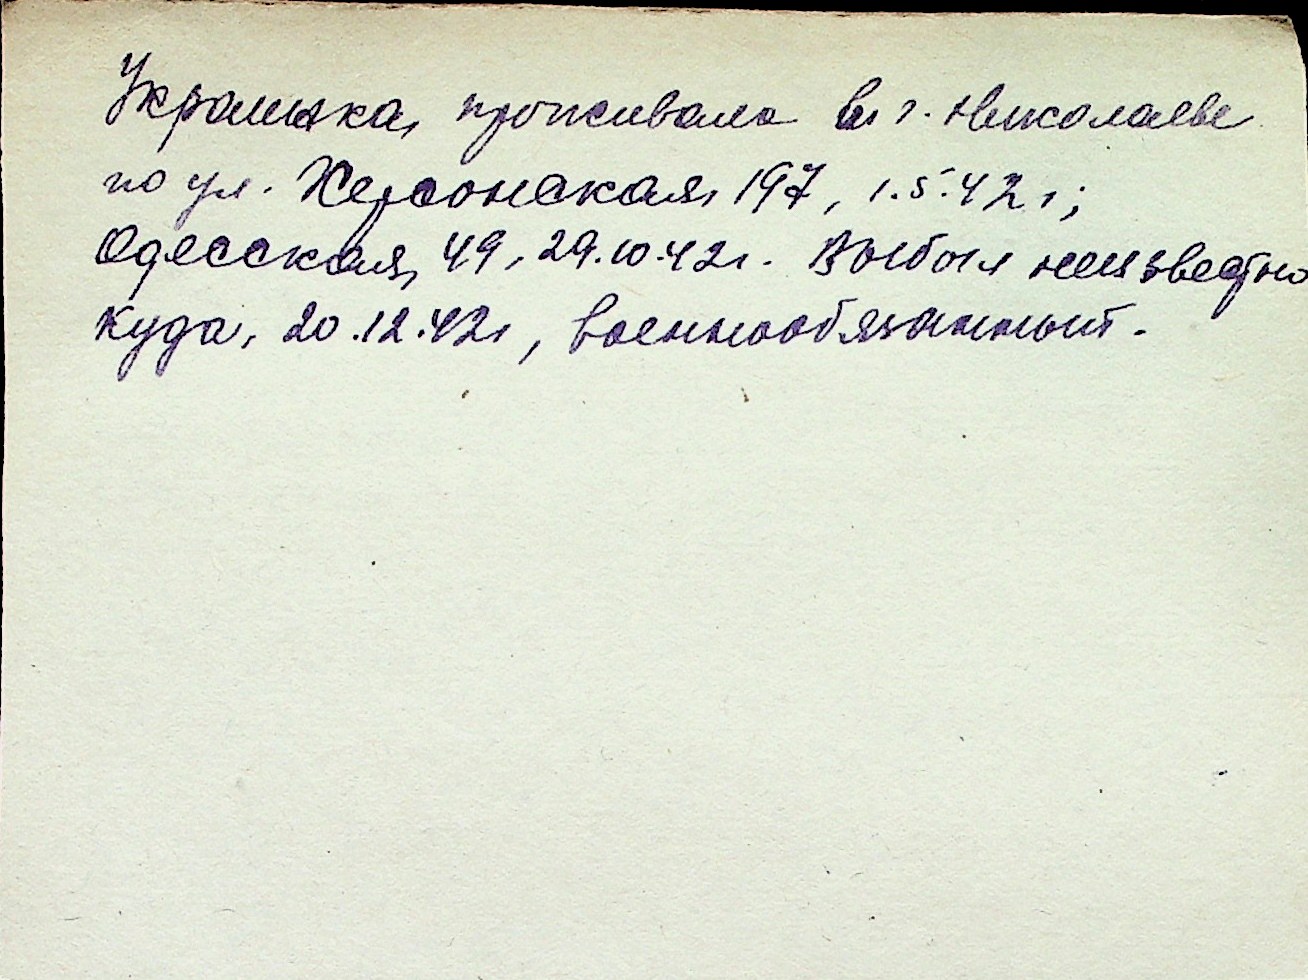 Украинка, проживала в г. Николаеве
по ул. Херсонская, 197, 1.5.42 г;
Одесская, 49, 29.10.42г. Выбыл неизвестно
куда, 20.12.42г, военнообязанный.